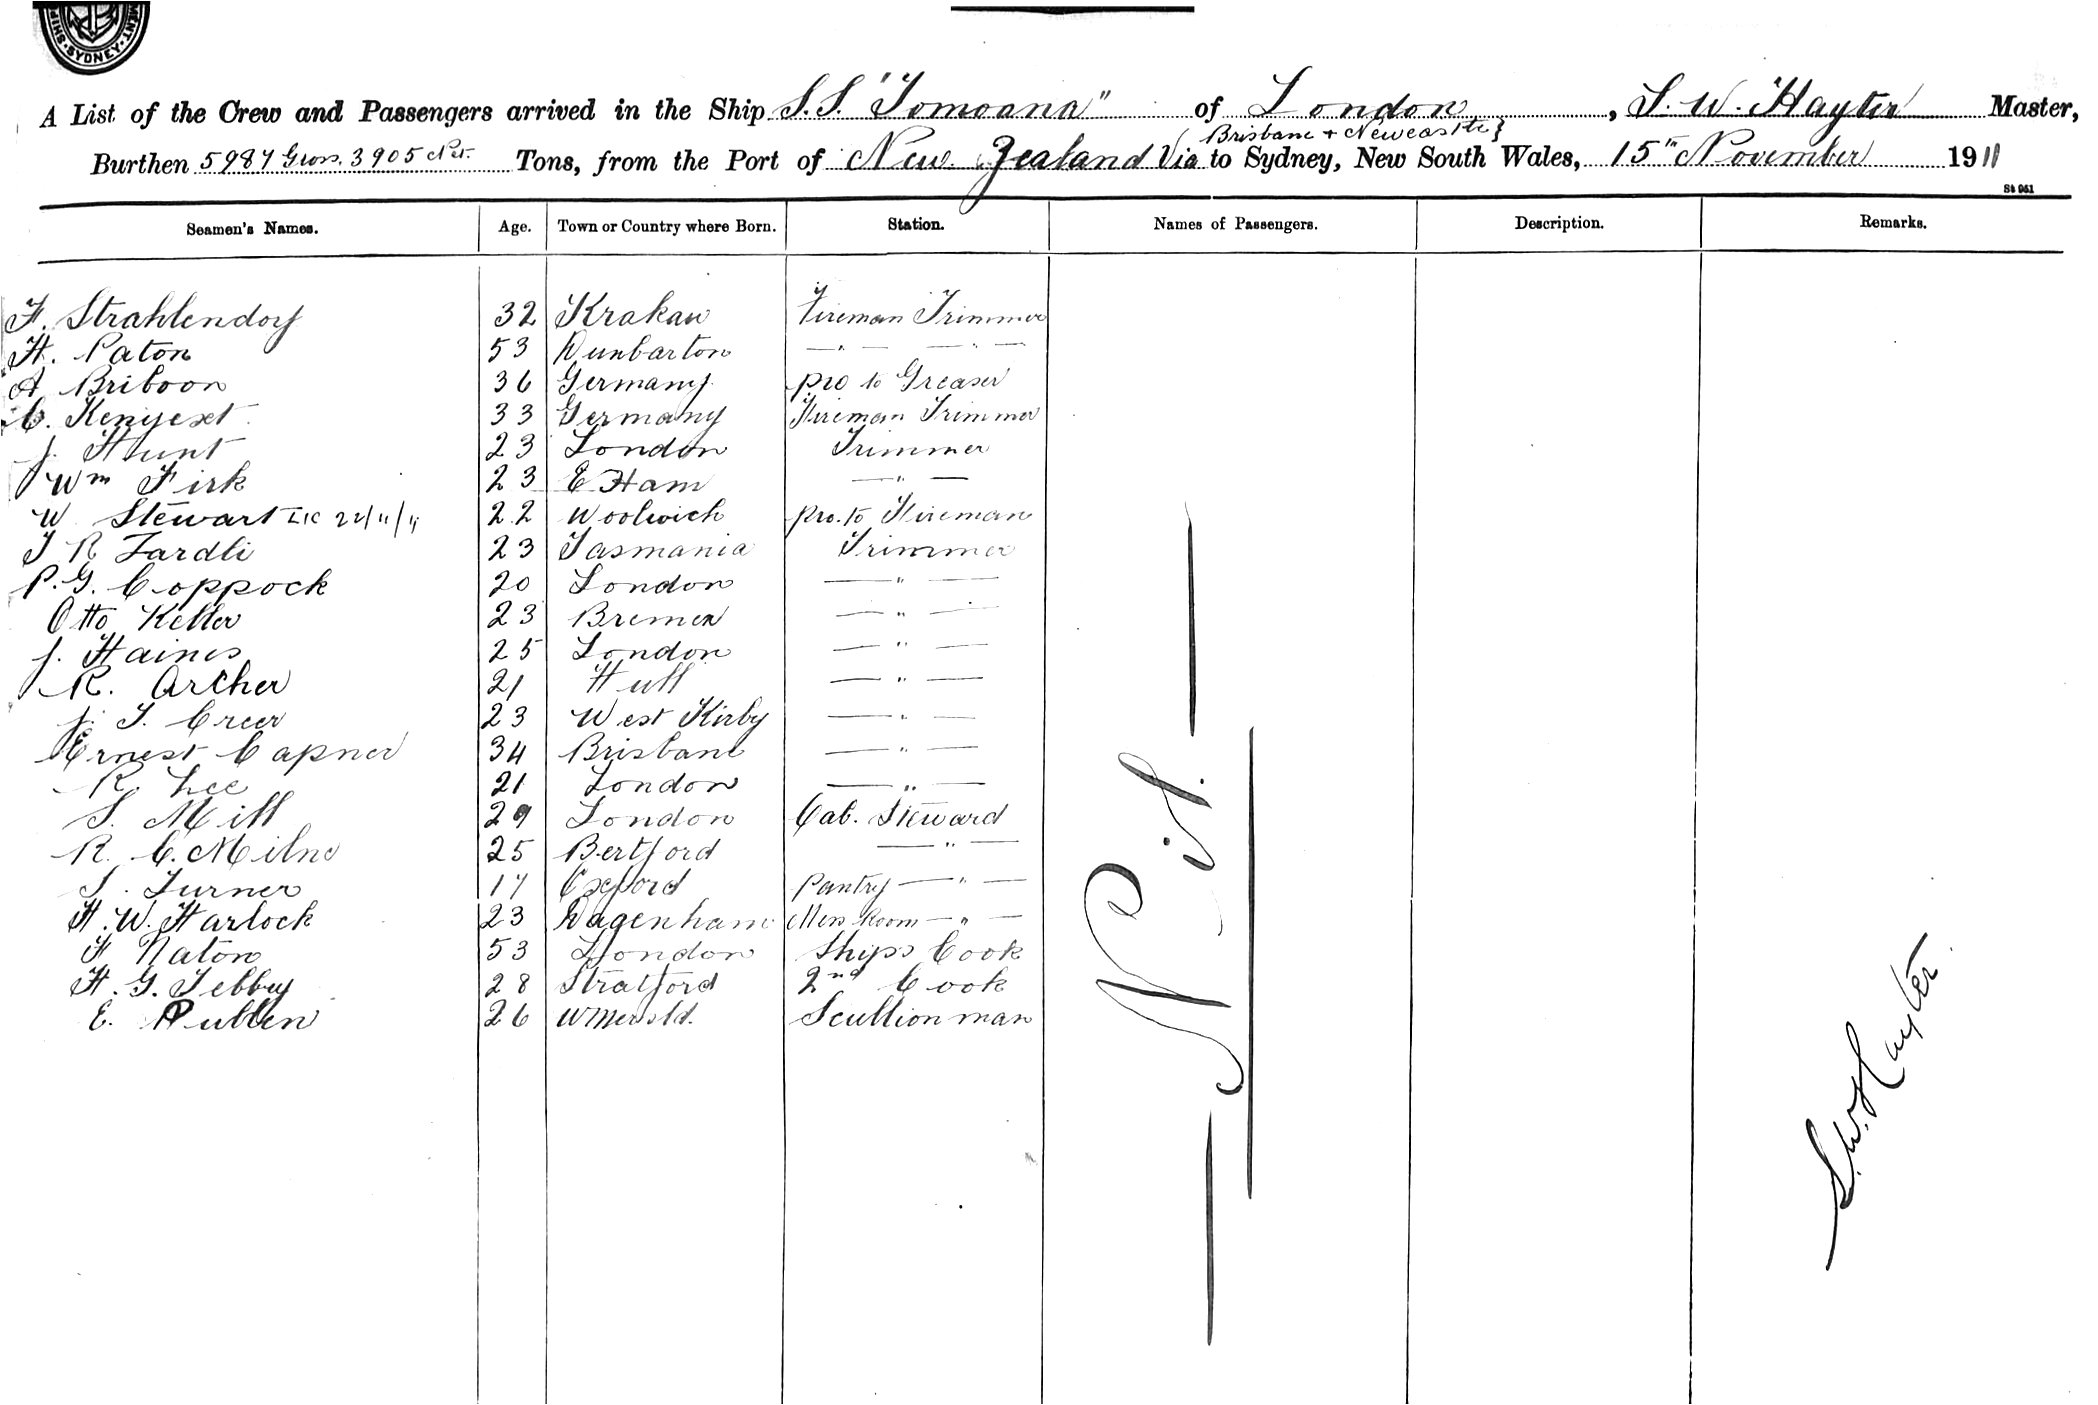 SHIP MENT · SYDNEY ·
A List of the Crew and Passengers arrived in the Ship S.S. "Tomoana" of London, S. W. Hayter Master,
Brisbane + Newcastle}
Burthen 5987 Gross. 3905 Net. Tons, from the Port of New Zealand Via to Sydney, New South Wales, 15th November 1911
St 951
Seamen's Names. Age. Town or Country where Born. Station. Names of Passengers. Description. Remarks.
F. Strahlendorf 32 Krakau Fireman Trimmer
H. Paton 53 Dunbarton —"— —"—
A Briboon 36 Germany pro to Greaser
C. Kenyext 33 Germany Fireman Trimmer
J. Hunt 23 London Trimmer
Wm Firk 23 E Ham —"—
W Stewart 22/11/11 22 Woolwich pro. to Fireman
T R Zardli 23 Tasmania Trimmer
P. G. Coppock 20 London —"—
Otto Keller 23 Bremen —"—
J. Haines 25 London —"—
R. Archer 21 Hull —"—
J. T. Creer 23 West Kirby —"—
Ernest Capner 34 Brisbane —"—
R. Lee 21 London —"—
S. Mill 29 London Cab. Steward
R. C. Milne 25 Bertford —"—
S. Turner 17 Oxford Pantry —"—
H. W. Harlock 23 Dagenham Mess Room —"—
F Naton 53 London Ships Cook
H. G. Tebby 28 Stratford 2nd Cook
E. Pullen 26 Scullion man
— Nil. —
S. W. Hayter